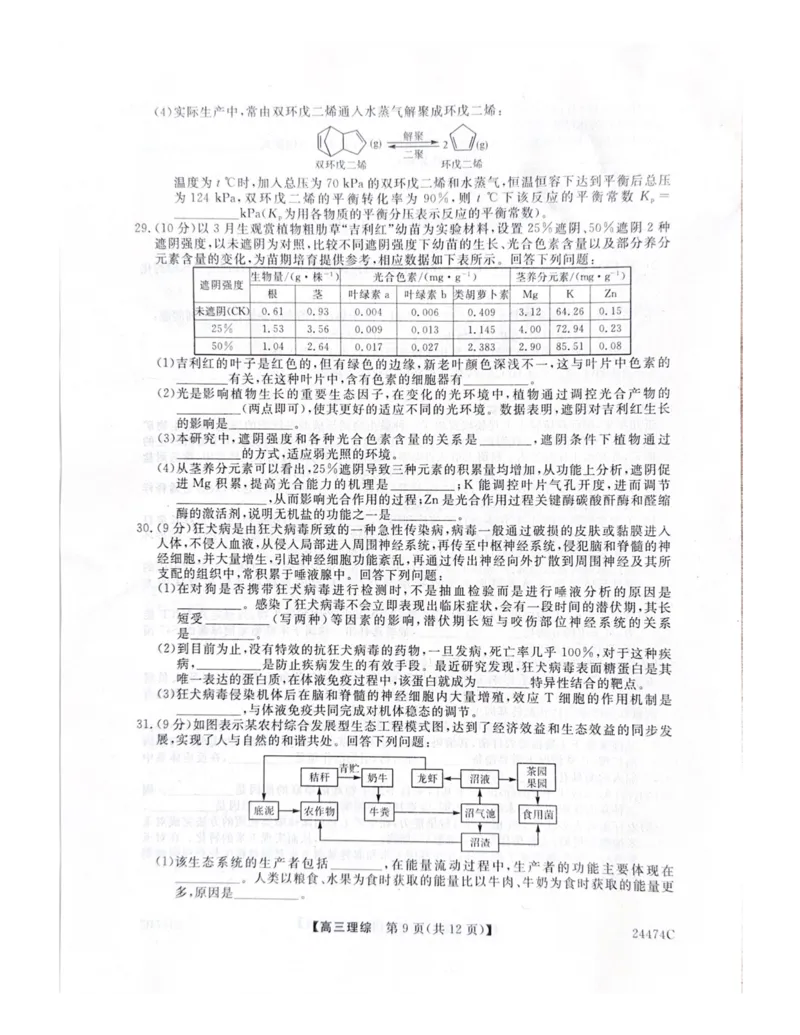 (4)实际生产中,常由双环戊二烯通入水蒸气解聚成环戊二烯:
解聚
(g) 2 (g)
二聚
双环戊二烯 环戊二烯
温度为 t ℃时,加入总压为 70 kPa 的双环戊二烯和水蒸气,恒温恒容下达到平衡后总压
为 124 kPa,双环戊二烯的平衡转化率为 90%,则 t ℃下该反应的平衡常数 Kp=
________kPa(Kp为用各物质的平衡分压表示反应的平衡常数)。
29.(10 分)以 3 月生观赏植物粗肋草“吉利红”幼苗为实验材料,设置 25%遮阴、50%遮阴 2 种
遮阴强度,以未遮阴为对照,比较不同遮阴强度下幼苗的生长、光合色素含量以及部分养分
元素含量的变化,为苗期培育提供参考,相应数据如下表所示。回答下列问题:
遮阴强度 生物量/(g·株⁻¹) 光合色素/(mg·g⁻¹) 茎养分元素/(mg·g⁻¹)
根 茎 叶绿素 a 叶绿素 b 类胡萝卜素 Mg K Zn
未遮阴(CK) 0.61 0.93 0.004 0.006 0.409 3.12 64.26 0.15
25% 1.53 3.56 0.009 0.013 1.145 4.00 72.94 0.23
50% 1.04 2.64 0.017 0.027 2.383 2.90 85.51 0.08
(1)吉利红的叶子是红色的,但有绿色的边缘,新老叶颜色深浅不一,这与叶片中色素的
________有关,在这种叶片中,含有色素的细胞器有________。
(2)光是影响植物生长的重要生态因子,在变化的光环境中,植物通过调控光合产物的
________(两点即可),使其更好的适应不同的光环境。数据表明,遮阴对吉利红生长
的影响是________。
(3)本研究中,遮阴强度和各种光合色素含量的关系是________,遮阴条件下植物通过
________的方式,适应弱光照的环境。
(4)从茎养分元素可以看出,25%遮阴导致三种元素的积累量均增加,从功能上分析,遮阴促
进 Mg 积累,提高光合能力的机理是________;K 能调控叶片气孔开度,进而调节
________,从而影响光合作用的过程;Zn 是光合作用过程关键酶碳酸酐酶和醛缩
酶的激活剂,说明无机盐的功能之一是________。
30.(9 分)狂犬病是由狂犬病毒所致的一种急性传染病,病毒一般通过破损的皮肤或黏膜进入
人体,不侵入血液,从侵入局部进入周围神经系统,再传至中枢神经系统,侵犯脑和脊髓的神
经细胞,并大量增生,引起神经细胞功能紊乱,再通过传出神经向外扩散到周围神经及其所
支配的组织中,常积累于唾液腺中。回答下列问题:
(1)在对狗是否携带狂犬病毒进行检测时,不是抽血检验而是进行唾液分析的原因是
________。感染了狂犬病毒不会立即表现出临床症状,会有一段时间的潜伏期,其长
短受________(写两种)等因素的影响,潜伏期长短与咬伤部位神经系统的关系
是________。
(2)到目前为止,没有特效的抗狂犬病毒的药物,一旦发病,死亡率几乎 100%,对于这种疾
病,________是防止疾病发生的有效手段。最近研究发现,狂犬病毒表面糖蛋白是其
唯一表达的蛋白质,在体液免疫过程中,该蛋白就成为________特异性结合的靶点。
(3)狂犬病毒侵染机体后在脑和脊髓的神经细胞内大量增殖,效应 T 细胞的作用机制是
________,与体液免疫共同完成对机体稳态的调节。
31.(9 分)如图表示某农村综合发展型生态工程模式图,达到了经济效益和生态效益的同步发
展,实现了人与自然的和谐共处。回答下列问题:
秸秆 青贮 奶牛 龙虾 沼液 茶园果园
底泥 农作物 牛粪 沼气池 食用菌
沼渣
(1)该生态系统的生产者包括________,在能量流动过程中,生产者的功能主要体现在
________。人类以粮食、水果为食时获取的能量比以牛肉、牛奶为食时获取的能量更
多,原因是________。
【高三理综 第 9 页(共 12 页)】
24474C